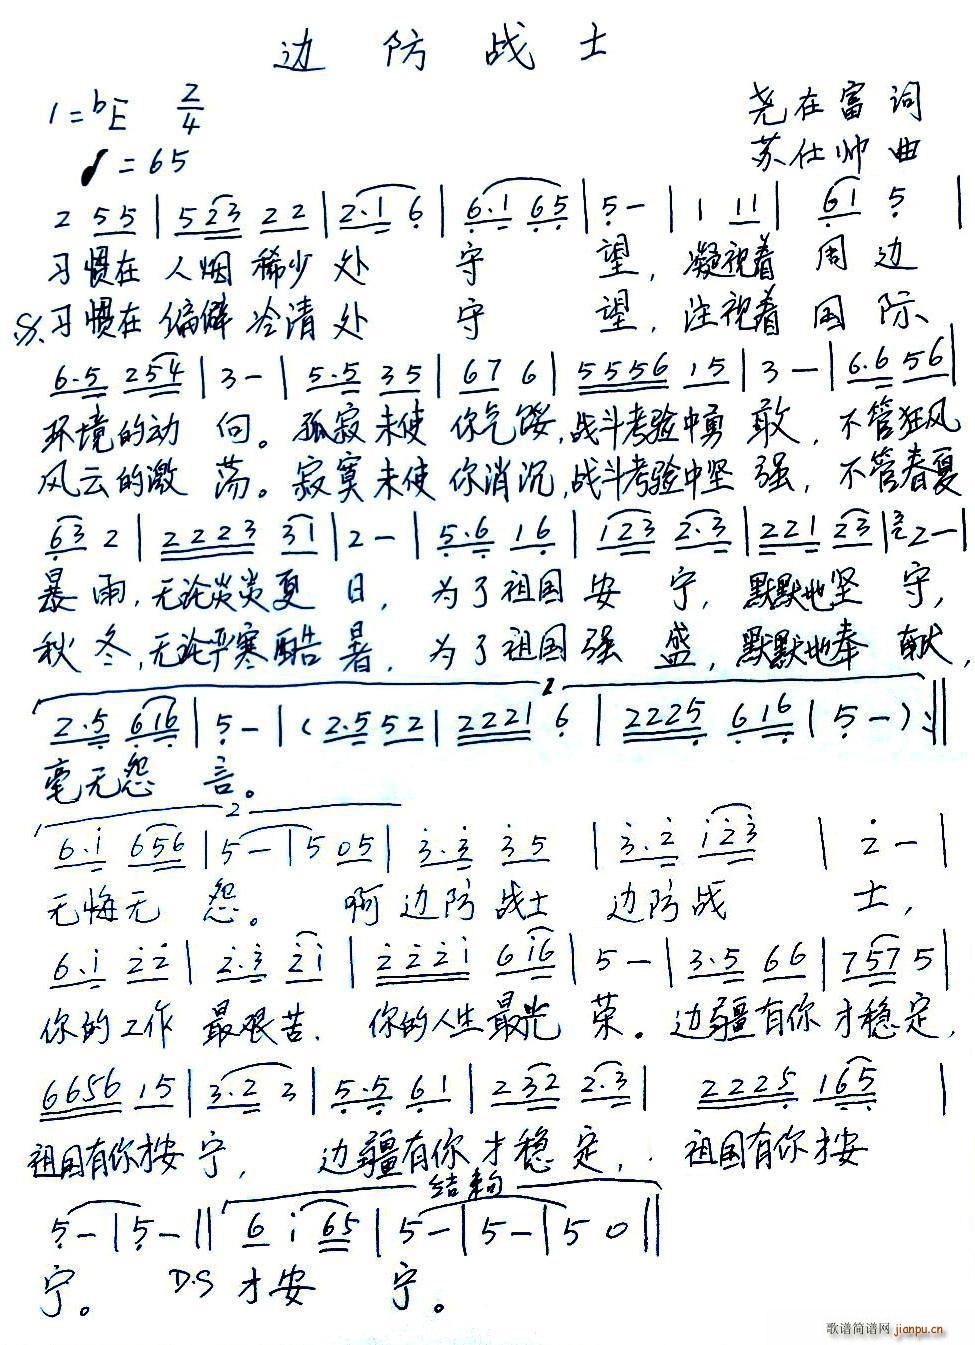 边 防 战 士
1=bE 2/4
尧在富 词
♩=65
苏仕帅 曲
2 55 | 523 22 | 2·1 6 | 6·1 65 | 5 - | 1 11 | 61 5 |
习惯在 人烟 稀少 处 守 望, 凝视着 周 边
习惯在 偏僻 冷清 处 守 望, 注视着 国 际
6·5 254 | 3 - | 5·5 35 | 67 6 | 5556 15 | 3 - | 6·6 56 |
环境的动 向。 孤寂未使 你气馁, 战斗考验中勇 敢, 不管狂风
风云的激 荡。 寂寞未使 你消沉, 战斗考验中坚 强, 不管春夏
63 2 | 2223 31 | 2 - | 5·6 16 | 123 2·3 | 221 23 | 32 - |
暴 雨, 无论炎炎夏 日, 为了祖国安 宁, 默默地坚 守,
秋 冬, 无论严寒酷 暑, 为了祖国强 盛, 默默地奉 献,
1
2·5 616 | 5 - | (2·5 52 | 2221 6 | 2225 616 | 5 -) :||
毫无怨 言。
2
6·i 656 | 5 - | 5 05 | 3·3 35 | 3·2 i23 | 2 - |
无悔无 怨。 啊 边防 战士 边防战 士,
6·i 22 | 2·3 2i | 222i 6i6 | 5 - | 3·5 66 | 757 5 |
你的工作 最艰苦, 你的人生最光 荣。 边疆有你 才稳定,
6656 15 | 3·2 3 | 5·5 61 | 232 2·3 | 2225 165 |
祖国有你才安 宁, 边疆有你才稳 定, 祖国有你才安
结束句
5 - | 5 - || 6 i 65 | 5 - | 5 - | 5 0 ||
宁。 D.S 才安 宁。
歌谱简谱网
jianpu.cn